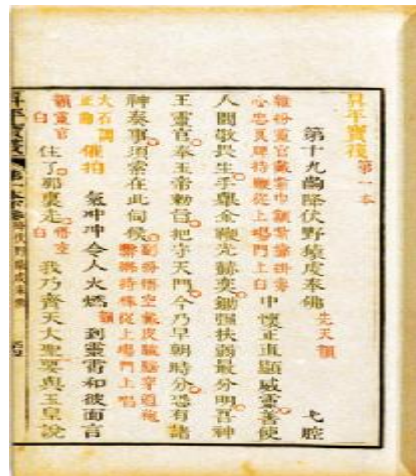 昇平寶筏 第一本
第十九齣 降伏野猿虔奉佛 先天韻 弋腔
雜扮靈官戴
心忠良
持鞭從上場門上白
中懷正直顯威靈善便
人間敬畏生手舉金鞭光赫奕鋤強扶弱最分明吾神
王靈官奉玉帝勅旨把守天門今乃早朝時分恐有諸
神奏事須索在此伺候
扮悟空戴
穿道袍
持棒從上場門上唱
大石調
正曲
催拍
氣冲冲令人火燔韻
到靈霄和彼面言
韻靈官
白
住了那裏走
悟空
白
我乃齊天大聖要與玉皇說
昇平寶筏
第一本卷